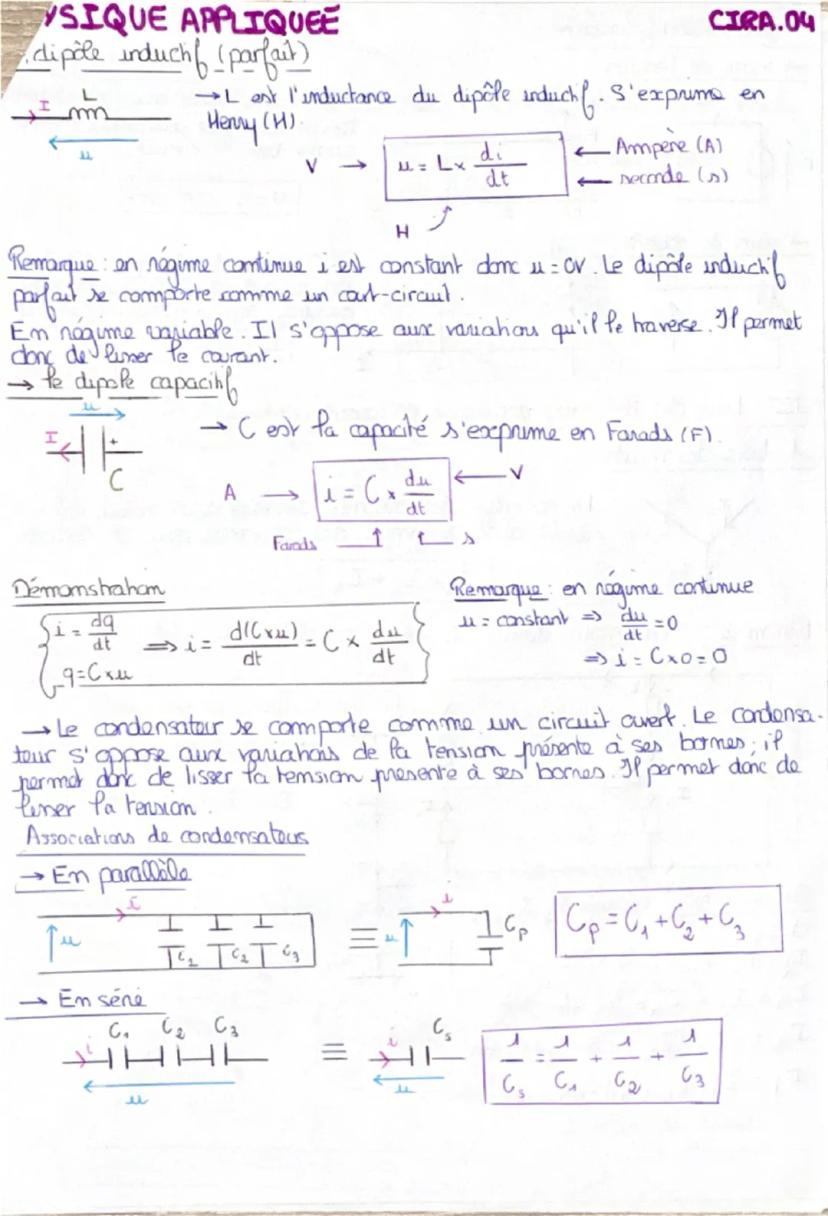 YSIQUE APPLIQUEÉ CIRA.04
dipôle inductif (parfait)
I L → L est l'inductance du dipôle inductif. S'exprime en
Henry (H).
u
V → u = L × di/dt ← Ampère (A)
← seconde (s)
H
Remarque : en régime continue i est constant donc u = 0V. Le dipôle inductif
parfait se comporte comme un court-circuit.
En régime variable. Il s'oppose aux variations qu'il le traverse. Il permet
donc de lisser le courant.
→ le dipole capacitif
u
I + C → C est la capacité s'exprime en Farads (F).
A → i = C × du/dt ← V
Farads ↑ s
Démonstration
i = dq/dt ⇒ i = d(C×u)/dt = C × du/dt
q = C×u
Remarque : en régime continue
u = constant ⇒ du/dt = 0
⇒ i = C×0 = 0
→ Le condensateur se comporte comme un circuit ouvert. Le condensa-
teur s'oppose aux variations de la tension présente à ses bornes ; il
permet donc de lisser la tension presente à ses bornes. Il permet donc de
lisser la tension.
Associations de condensateurs
→ En parallèle
u i C1 C2 C3 ≡ u i Cp Cp = C1 + C2 + C3
→ En série
i C1 C2 C3 u ≡ i Cs u 1/Cs = 1/C1 + 1/C2 + 1/C3